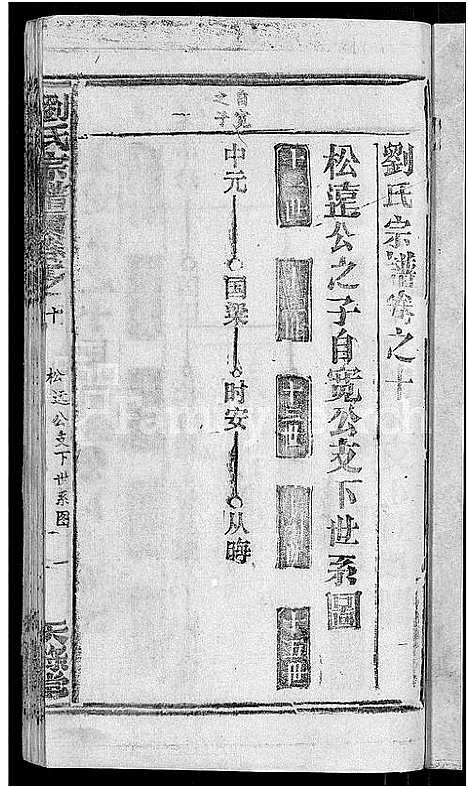 劉氏宗譜卷之十
松遠公之子自寬公支下世系圖
十一世
十二世
十三世
十四世
十五世
自寬之子
中元
国梁
时安
从晦
劉氏宗譜卷之十
松远公支下世系图
一
天祿堂